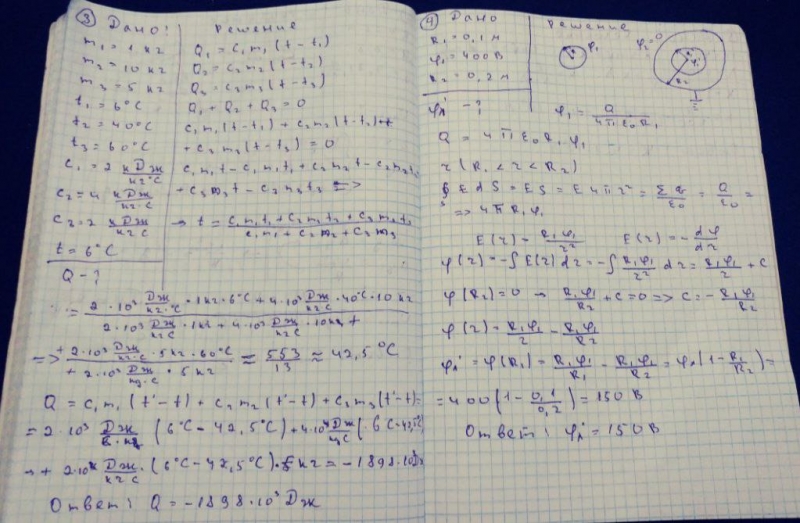 ③ Дано:
m₁ = 1 кг
m₂ = 10 кг
m₃ = 5 кг
t₁ = 6°C
t₂ = 40°C
t₃ = 60°C
c₁ = 2 кДж/кг°C
c₂ = 4 кДж/кг·C
c₃ = 2 кДж/кг C
t = 6°C
Q - ?
Решение
Q₁ = c₁m₁(t - t₁)
Q₂ = c₂m₂(t - t₂)
Q₃ = c₃m₃(t - t₃)
Q₁ + Q₂ + Q₃ = 0
c₁m₁(t - t₁) + c₂m₂(t - t₂) +
+ c₃m₃(t - t₃) = 0
c₁m₁t - c₁m₁t₁ + c₂m₂t - c₂m₂t₂
+ c₃m₃t - c₃m₃t₃ =>
→ t = (c₁m₁t₁ + c₂m₂t₂ + c₃m₃t₃)/(c₁m₁ + c₂m₂ + c₃m₃)
= (2·10³ Дж/кг·°C · 1кг·6°C + 4·10³ Дж/кг·C · 40°C · 10кг)/(2·10³ Дж/кг·C · 1кг + 4·10³ Дж/кг·C · 10кг +
=> (+ 2·10³ Дж/кг·C · 5кг · 60°C)/(+ 2·10³ Дж/кг·C · 5кг) ≈ 553/13 ≈ 42,5°C
Q = c₁m₁(t' - t) + c₂m₂(t' - t) + c₃m₃(t' - t) =
= 2·10³ Дж (6°C - 42,5°C) + 4·10⁴ Дж/кг C (6°C - 42,5°C)
→ + 2·10³ Дж/кг C · (6°C - 42,5°C)·5кг = -1898·10³ Дж
Ответ: Q = -1898·10³ Дж
④ Дано
R₁ = 0,1 м
φ₁ = 400 В
R₂ = 0,2 м
φ₁' - ?
Решение
φ₁
φ₂ = 0
R₂
φ₁ = Q/4πε₀R₁
Q = 4πε₀R₁φ₁
r (R₁ < r < R₂)
∮ E dS = ES = E 4πr² = Σq/ε₀ = Q/ε₀ =
=> 4πR₁φ₁
E(r) = R₁φ₁/r² E(r) = -dφ/dr
φ(r) = -∫E(r)dr = -∫R₁φ₁/r² dr = R₁φ₁/r + C
φ(R₂) = 0 → R₁φ₁/R₂ + C = 0 => C = -R₁φ₁/R₂
φ(r) = R₁φ₁/r - R₁φ₁/R₂
φ₁' = φ(R₁) = R₁φ₁/R₁ - R₁φ₁/R₂ = φ₁(1 - R₁/R₂) =
= 400(1 - 0,1/0,2) = 150 В
Ответ: φ₁' = 150 В